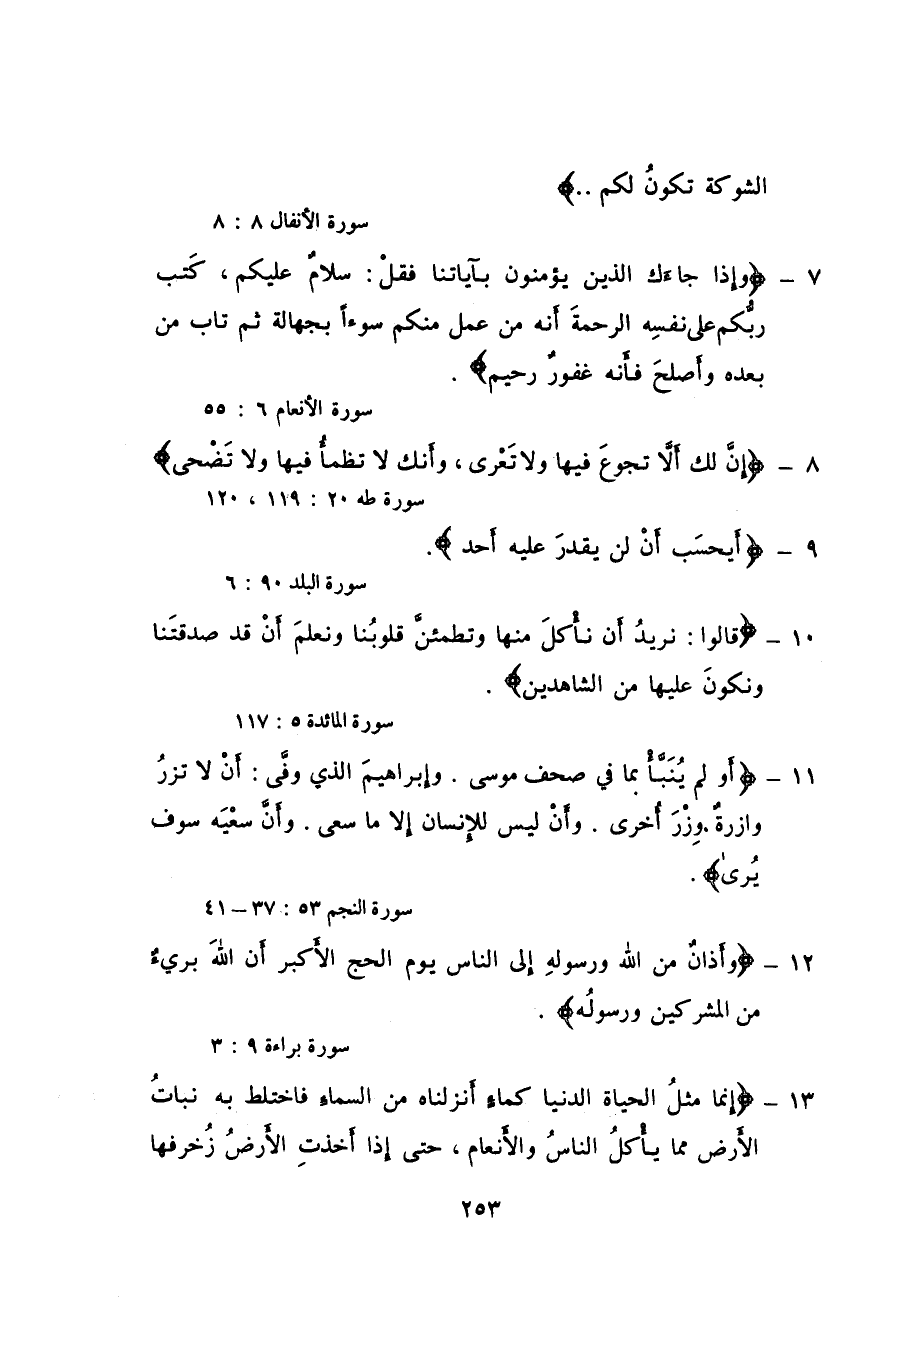 الشوكة تكونُ لكم ..﴾
سورة الأنفال ٨ : ٨
٧ – ﴿وإذا جاءك الذين يؤمنون بآياتنا فقلْ : سلامٌ عليكم ، كَتب
ربُّكم على نفسِه الرحمةَ أنه من عمل منكم سوءاً بجهالة ثم تاب من
بعده وأصلحَ فأنه غفورٌ رحيم﴾ .
سورة الأنعام ٦ : ٥٥
٨ – ﴿إنَّ لك ألَّا تجوعَ فيها ولا تَعْرى ، وأنك لا تظمأُ فيها ولا تَضْحى﴾
سورة طه ٢٠ : ١١٩ ، ١٢٠
٩ – ﴿أيحسَب أنْ لن يقدرَ عليه أحد ﴾.
سورة البلد ٩٠ : ٦
١٠ – ﴿قالوا : نريدُ أن نأْكلَ منها وتطمئنَّ قلوبُنا ونعلمَ أنْ قد صدقتَنا
ونكونَ عليها من الشاهدين﴾ .
سورة المائدة ٥ : ١١٧
١١ – ﴿أو لم يُنَبَّأْ بما في صحف موسى . وإبراهيمَ الذي وفَّى : أنْ لا تزرُ
وازرةٌ وِزْرَ أُخرى . وأنْ ليس للإنسان إلا ما سعى . وأنَّ سعْيَه سوف
يُرىٰ﴾ .
سورة النجم ٥٣ : ٣٧ – ٤١
١٢ – ﴿وأذانٌ من الله ورسولهِ إلى الناس يوم الحج الأكبر أن اللهَ بريءٌ
من المشركين ورسولُه﴾ .
سورة براءة ٩ : ٣
١٣ – ﴿إنما مثلُ الحياة الدنيا كماءٍ أنزلناه من السماء فاختلط به نباتُ
الأرض مما يأْكلُ الناسُ والأنعام ، حتى إذا أخذتِ الأرضُ زُخرفها
٢٥٣